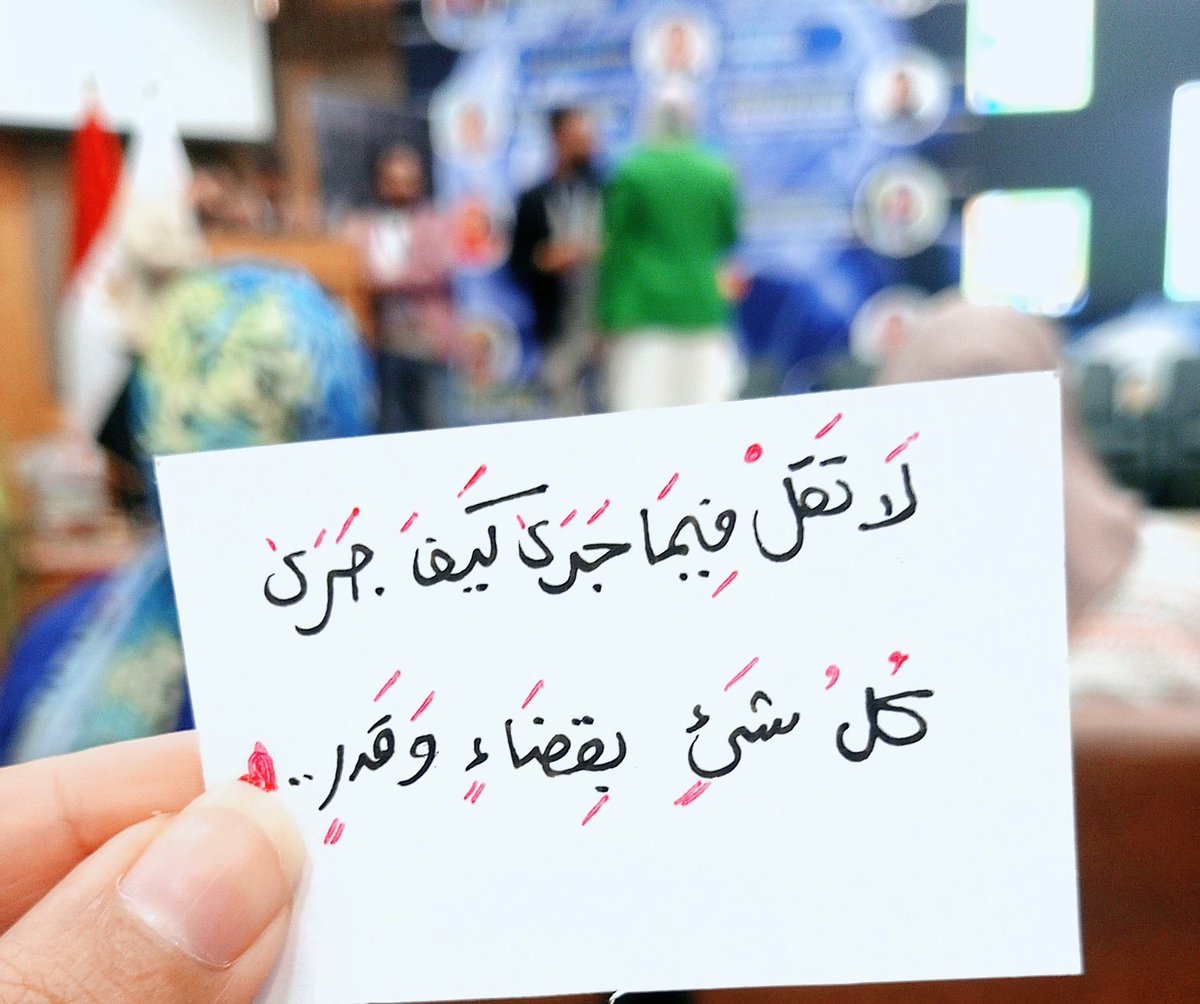 لَا تَقَلْ فِيمَا جَرَىٰ كَيَفَ جَرَىٰ
كُلُ شَئٍ بِقِضَاءٍ وَقَدرٍ..